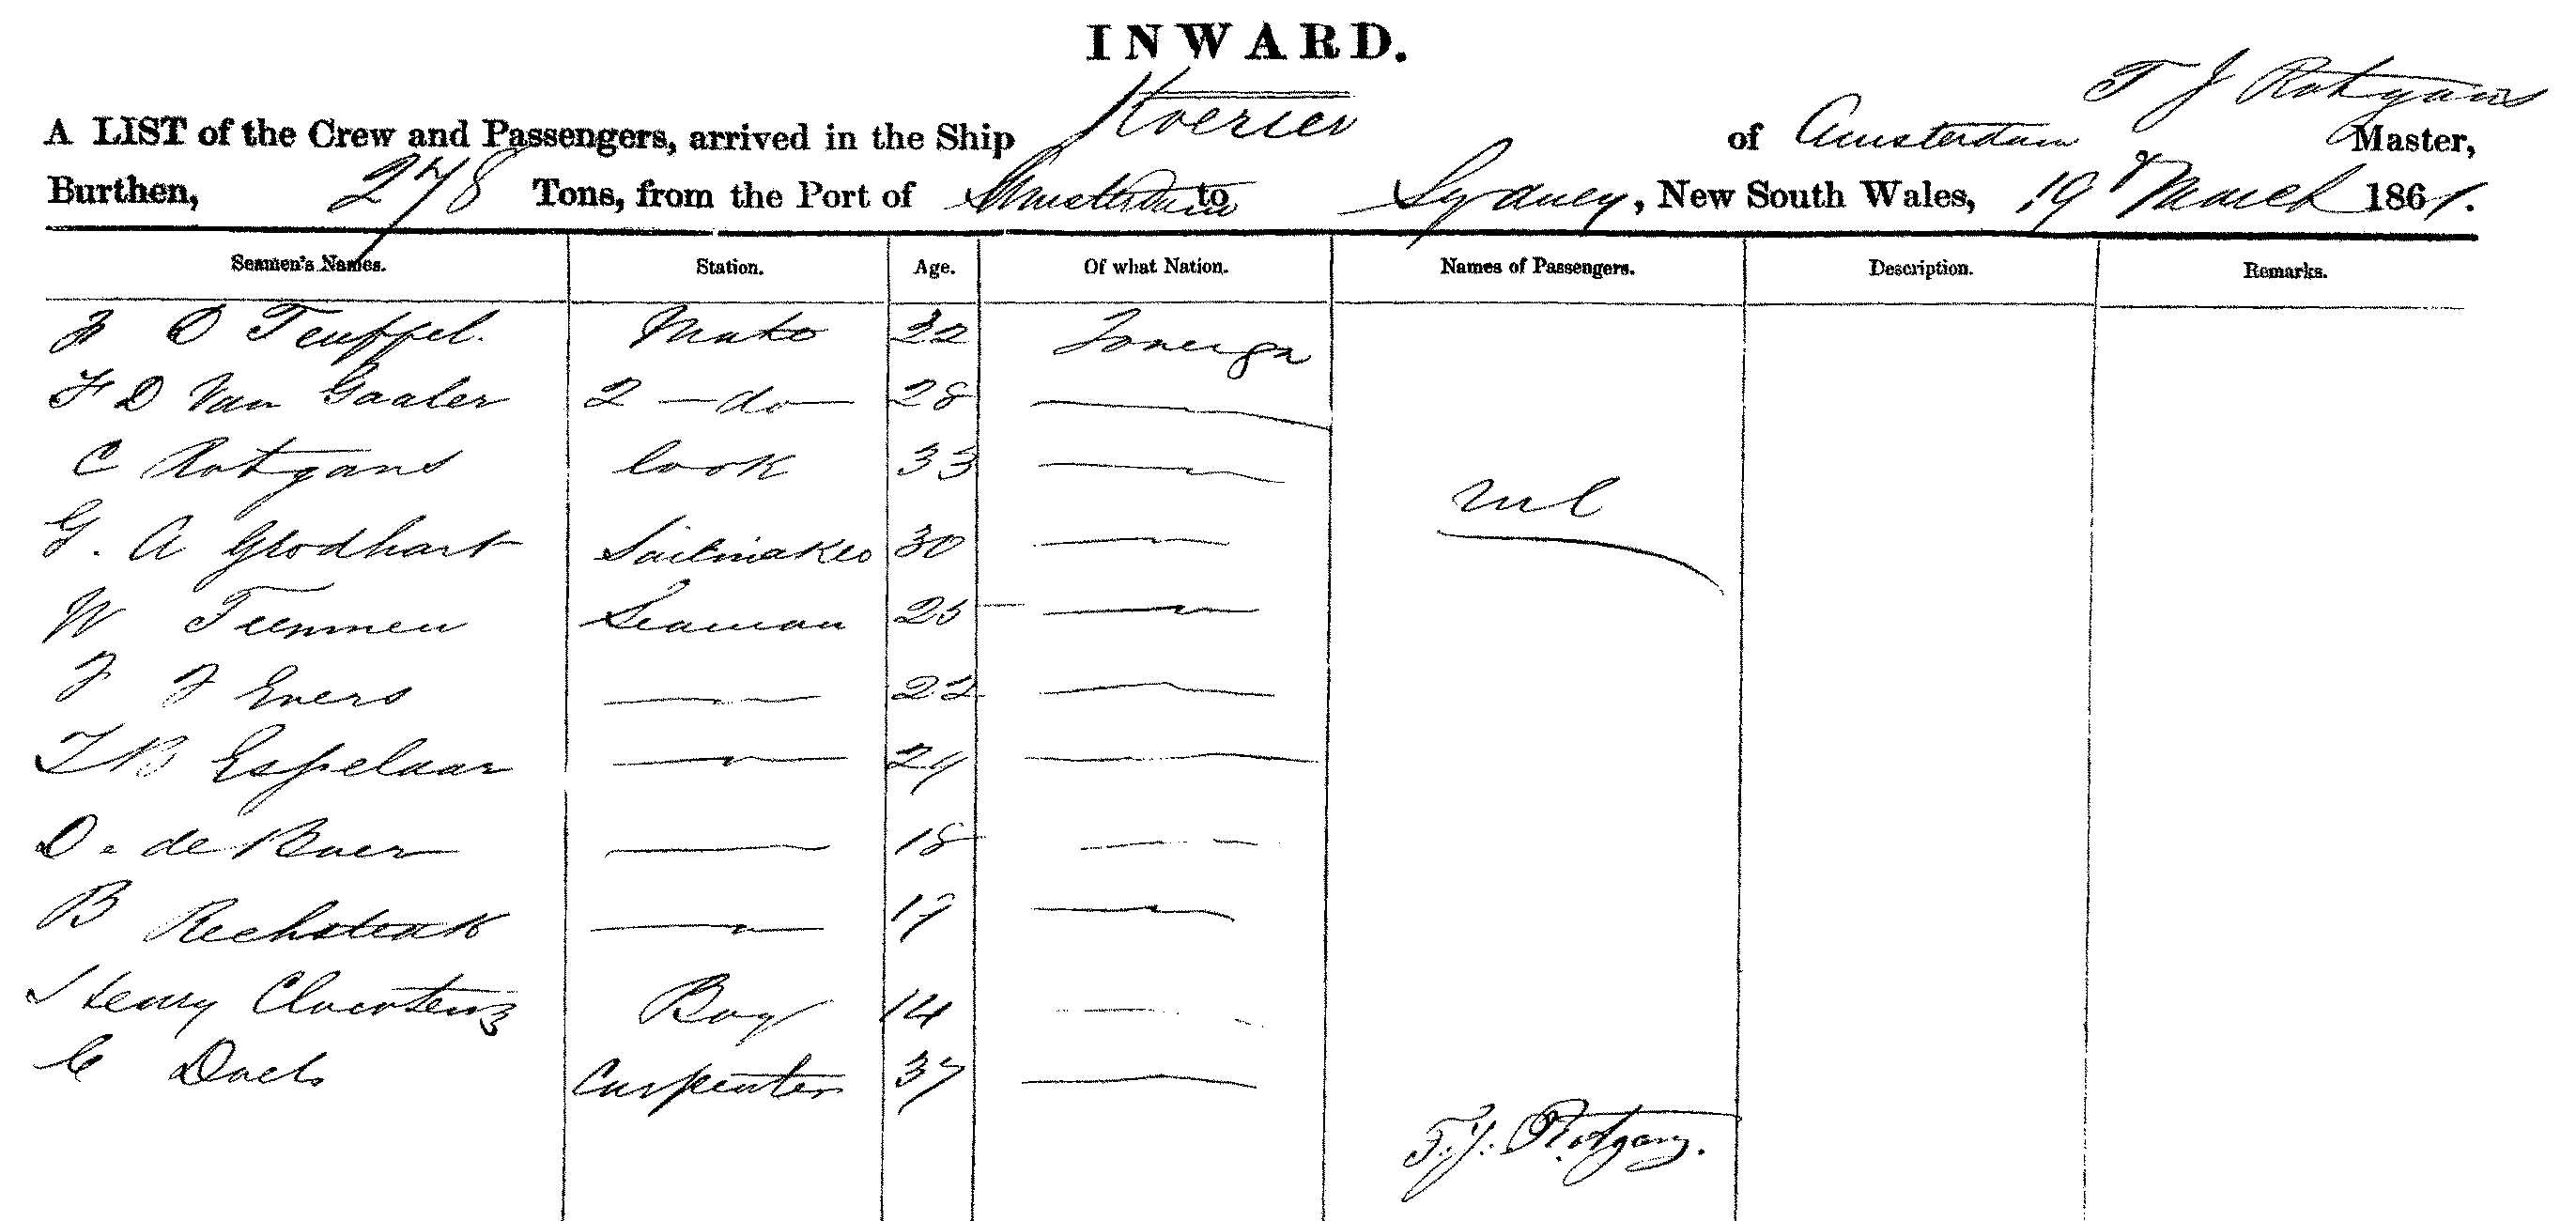 INWARD.
T J Rotgans
A LIST of the Crew and Passengers, arrived in the Ship Koerier of Amsterdam Master,
Burthen, 278 Tons, from the Port of Amsterdam to Sydney, New South Wales, 19 March 1861.
Seamen's Names. Station. Age. Of what Nation. Names of Passengers. Description. Remarks.
D Teuffel. Mate 32 Foreign
F D Van Gaaler 2 — do — 28
C Rotgans Cook 33
nil
G. A Grodhart Sailmaker 30
W Tienmen Seaman 25
F F Evers 22
Espelaar 24
D. de Boer 18
B Rechsteak 17
Henry Boy 14
C Carpenter 37
T. J. Rotgans.